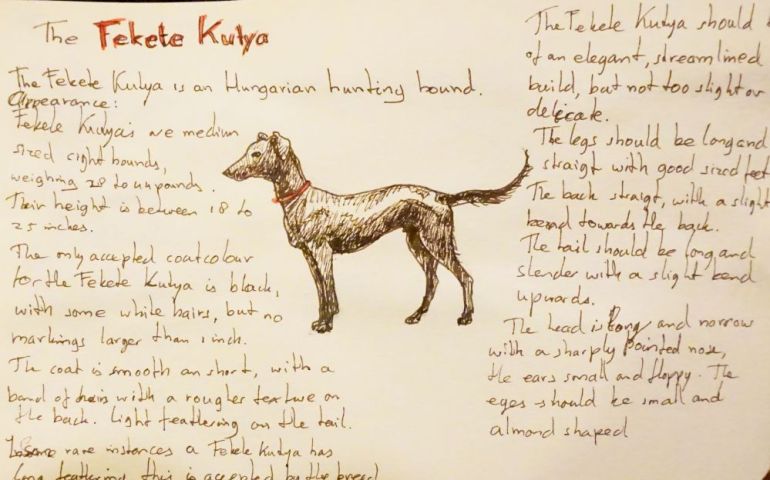 The Fekete Kutya
The Fekete Kutya is an Hungarian hunting hound.
Appearance:
Fekete Kutya's are medium
sized sight hounds,
weighing 28 to pounds.
Their height is between 18 to
25 inches.
The only accepted coatcolour
for the Fekete Kutya is black,
with some white hairs, but no
markings larger than 1 inch.
The coat is smooth an short, with a
band of hairs with a rougher texture on
the back. Light feathering on the tail.
some rare instances a Fekete Kutya has
long feathering, this is accepted by the breed
The Fekete Kutya should
of an elegant, streamlined
build, but not too slight or
delicate.
The legs should be long and
straigt with good sized feet
The back straigt, with a slight
bend towards the back.
The tail should be long and
slender with a slight bend
upwards.
The head is long and norrow
with a sharply pointed nose,
the ears small and floppy. The
eyes should be small and
almond shaped